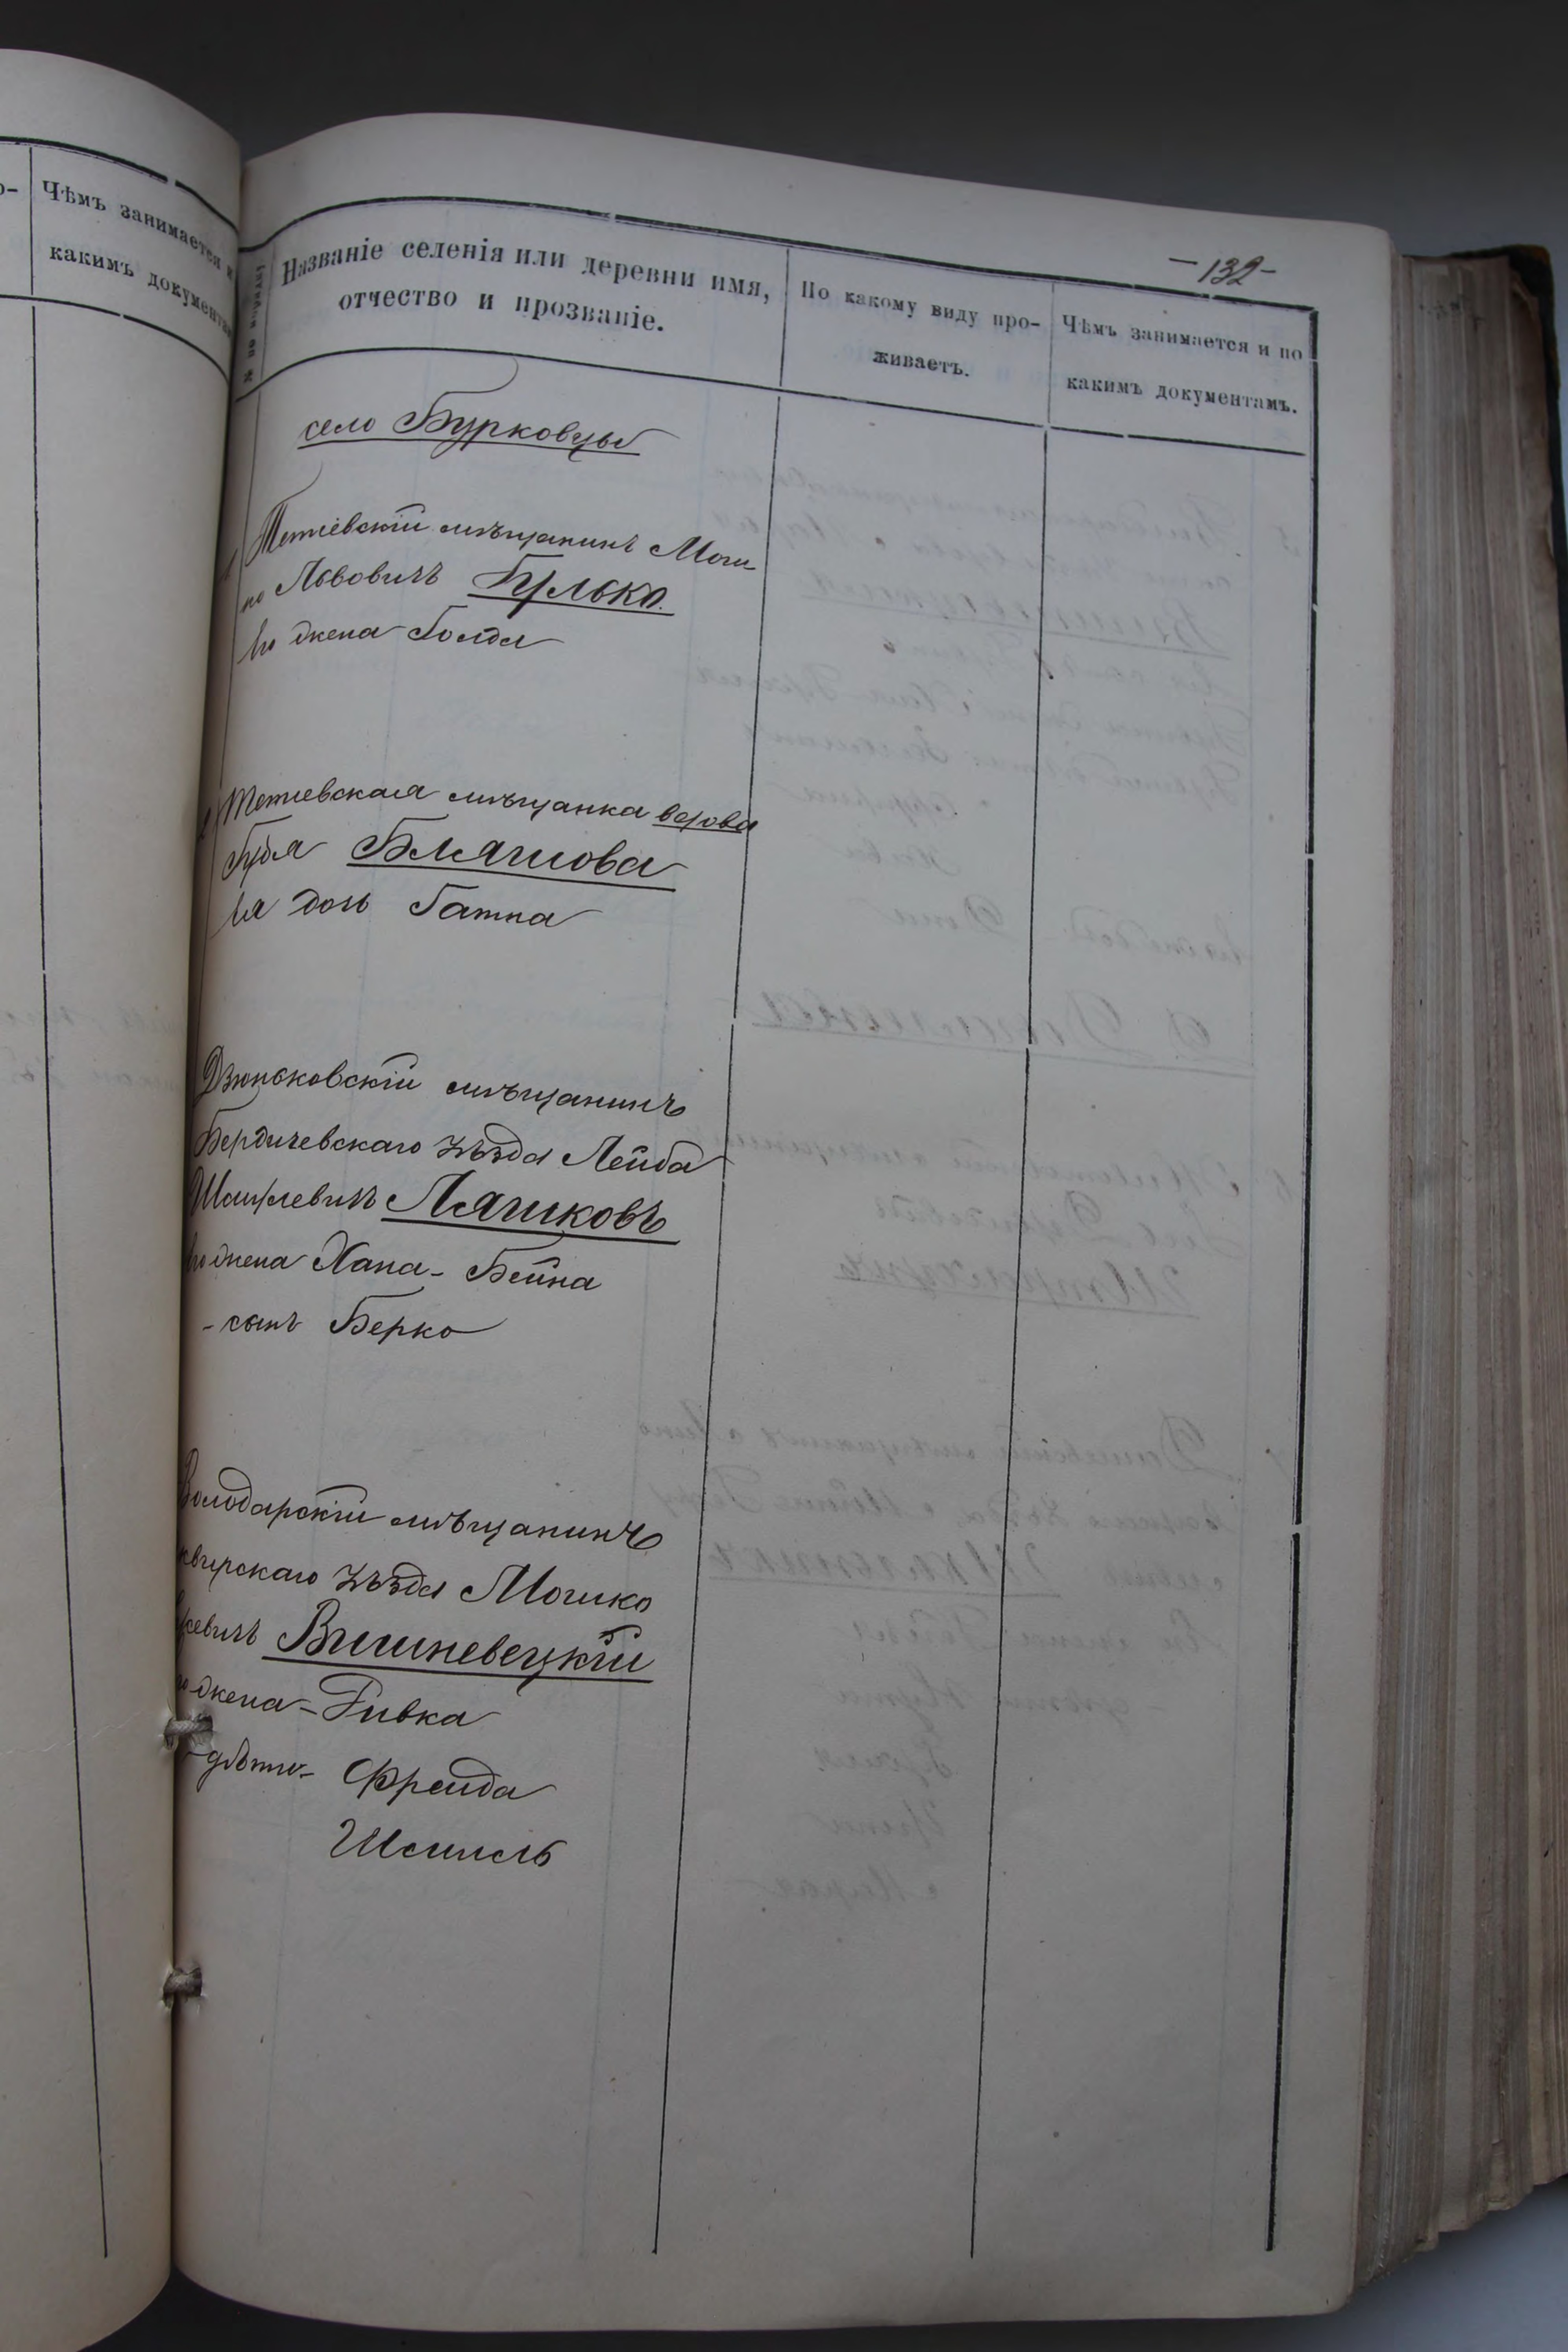 Чѣмъ занимается и
какимъ документа
— 132 —
Названіе селенія или деревни имя,
отчество и прозваніе.
По какому виду про-
живаетъ.
Чѣмъ занимается и по
какимъ документамъ.
село Бурковцы
Тетіевскій мѣщанинъ Мош-
ко Львовичъ Булько.
Его жена Голда
Тетіевская мѣщанка вдова
Бляшова
Ея дочь Гатна
Дзюньковскій мѣщанинъ
Бердичевскаго уѣзда Лейба
Ляшковъ
Его жена Хана - Бейна
- сынъ Берко
Володарскій мѣщанинъ
Сквирскаго уѣзда Мошко
Вишневецкій
жена - Ривка
- дѣти - Фрейда
Шмиль